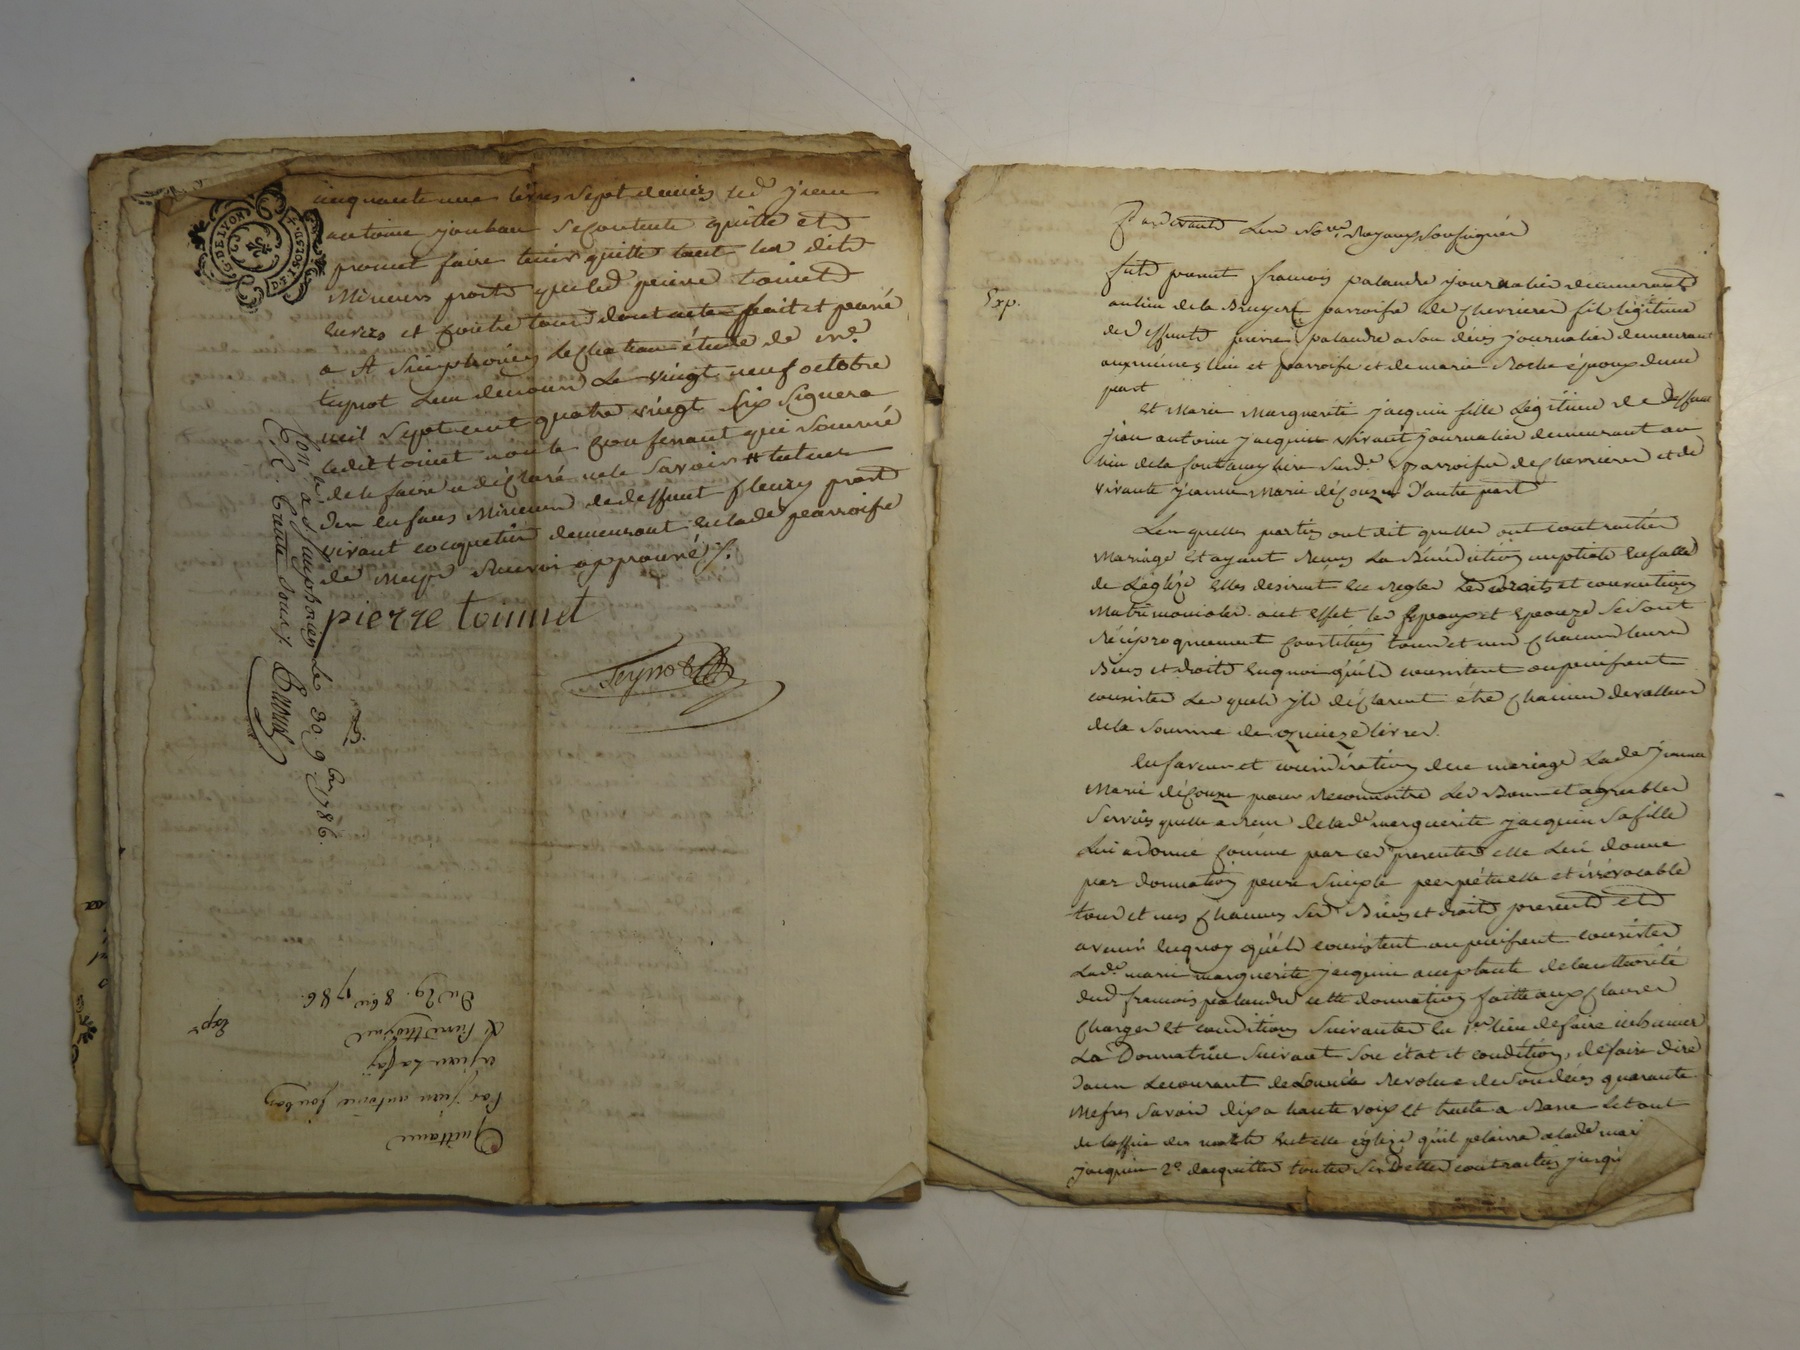 G. DE LYON
cinquante une livres sept deniers led jean
antoine joubau se contente quitte et
promet faire tenir quitte tant les dits
Mineurs prost que led pierre toinet
envers et contre tous dont acte fait et passé
a St simphorien le chateau étude de me
teynot l'un d'enour le vingt neuf octobre
mil sept cent quatre vingt six signera
ledit toinet non le confessant qui sommé
de le faire a déclaré ne le savoir # tuteur
des enfans Mineurs de deffunt fleury prost
vivant cocquetier demeurant en lade parroisse
de Meys renvoi approuvé
pierre toinnet
Teynot
Con le a St simphorien le 30 9bre 1786.
Quittance
Par jean antoine joubau
a jean
& pierre
Du 29. 8bre 1786.
Expe
Exp.
Pardevant Les Nores Royaux soussignés
fut present francois palandre journalier demeurant
au lieu de la Bruyere parroisse de chevrieres fils légitime
de deffunt pierre palandre a son décès journalier demeurant
aux mêmes lieu et parroisse et de marie Roche époux d'une
part
Et Marie Marguerite jacquin fille Légitime de deffunt
jean antoine jacquin vivant journalier demeurant au
lieu de la susde parroisse de chevrieres et de
vivante jeanne Marie découzu d'autre part
Lesquelles parties ont dit quelles ont contracté
Mariage et ayant Reçus La Bénédiction nuptiale en face
de L'églize elles desirent en regler les droits et conventions
Matrimoniales. a cet effet les Epoux et Epouze se sont
Réciproquement constitués tous et uns chacuns leurs
Biens et droits en quoi qu'ils consistent ou puissent
consister Les quels ils déclarent être chacun de valleur
de la somme de quinze livres.
En faveur et considération de ce mariage Lade jeanne
Marie découzu pour Reconnoitre Les Bons et agréables
Services quelle a Reçu de lade marguerite jacquin sa fille
Lui a donné comme par ces presentes elle Lui donne
par donnation pure simple perpétuelle et irrévocable
tous et uns chacuns ses Biens et droits presents et
avenir en quoy qu'ils consistent ou puissent consister
Lade marie marguerite jacquin acceptante de l'authorité
dud francois palandre cette donnation faitte aux clauses
charges et conditions suivantes en 1er lieu de faire inhumer
La Donnatrice suivant son état et condition, de faire dire
dans Le courant de L'année Revolue de son décès quarante
Messes savoir dix a haute voix et trente a Basse le tout
de l'office des morts en telle églize qu'il plaira a lade marie
jacquin 2º d'acquitter toutes ses Dettes contractées jusqu'